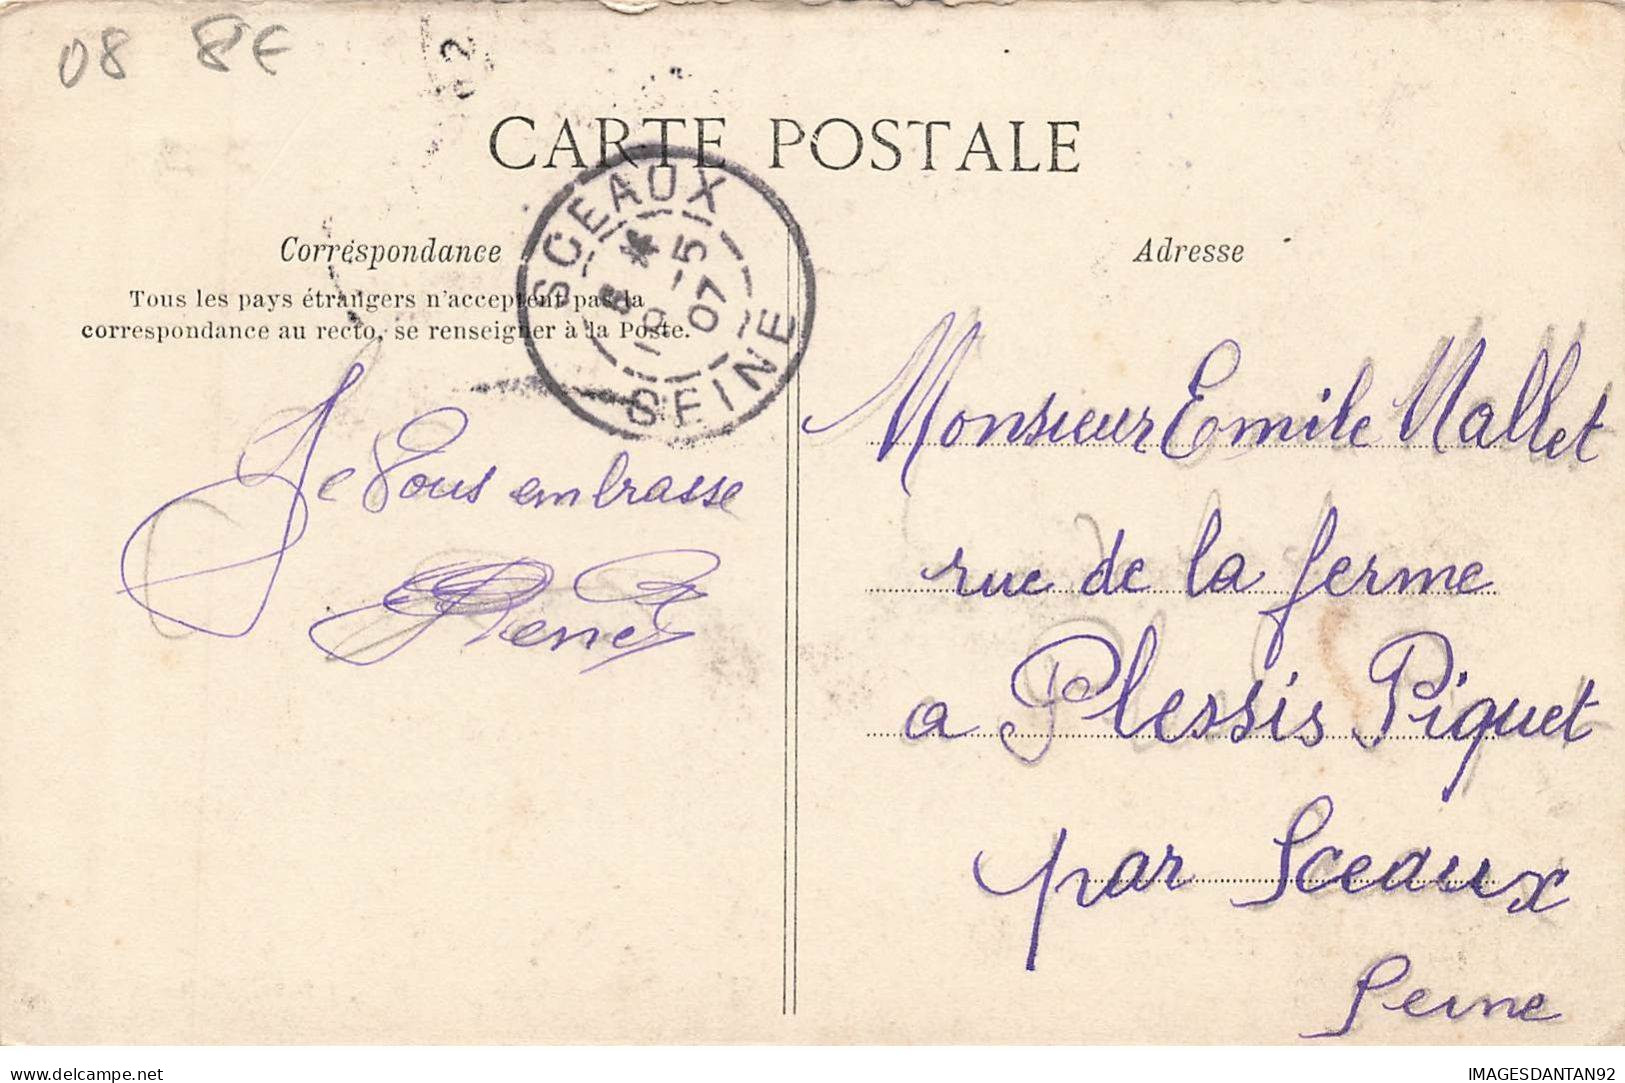 08 8€
CARTE POSTALE
SCEAUX
5
07
SEINE
Correspondance
Tous les pays étrangers n'acceptent pas la
correspondance au recto, se renseigner à la Poste.
Je Vous embrasse
René
Adresse
Monsieur Emile Mallet
rue de la ferme
a Plessis Piquet
par Sceaux
Seine
delcampe.net
IMAGESDANTAN92